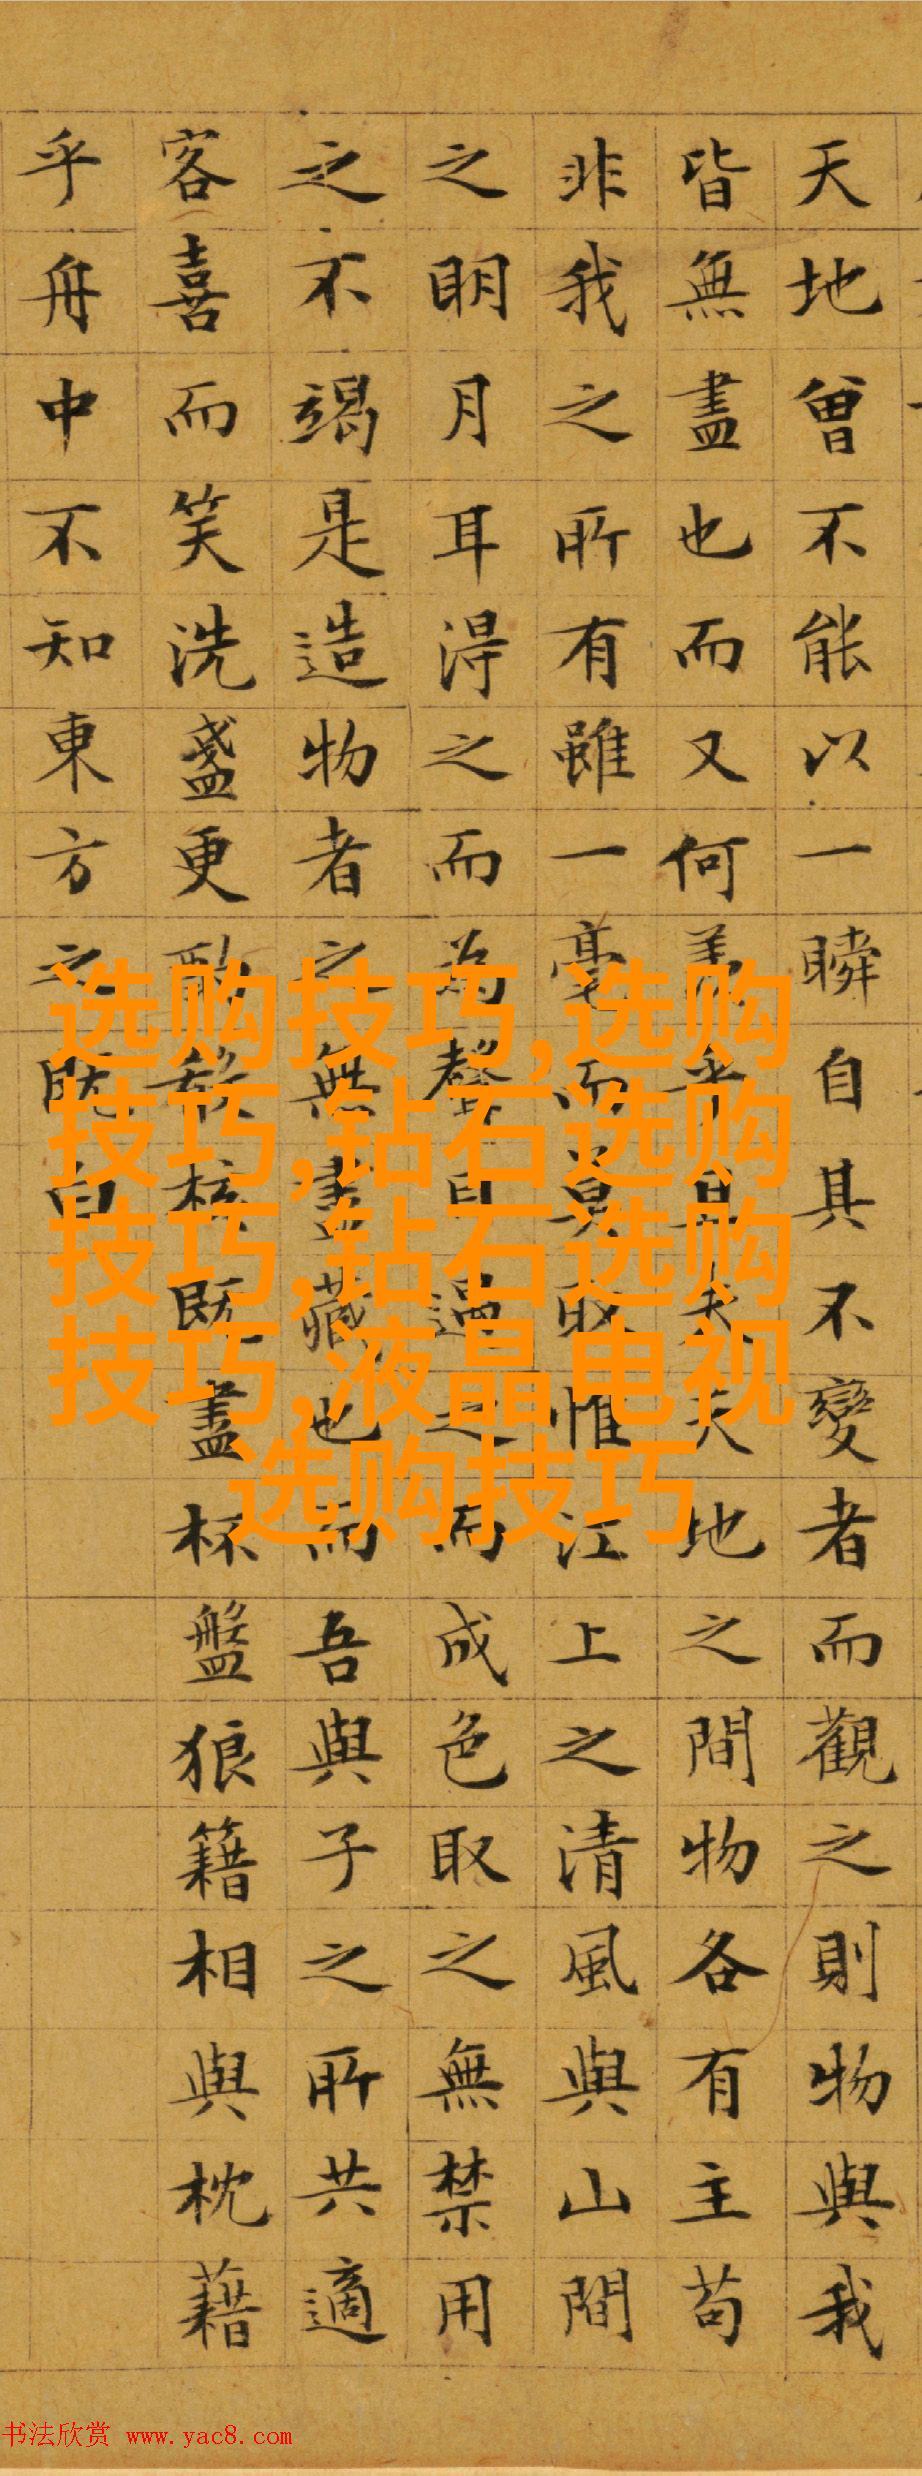 天地曾不能以一瞬自其不變者而觀之則物與我
皆無盡也而又何羨乎且夫天地之間物各有主苟
非我之所有雖一毫而莫取惟江上之清風與山間
之明月耳得之而為聲目遇之而成色取之無禁用
之不竭是造物者之無盡藏也而吾與子之所共適
客喜而笑洗盞更酌肴核既盡杯盤狼籍相與枕藉
乎舟中不知東方之既白
选购技巧,选购
技巧,钻石选购
技巧,钻石选购
技巧,液晶电视
选购技巧
书法欣赏 www.yac8.com